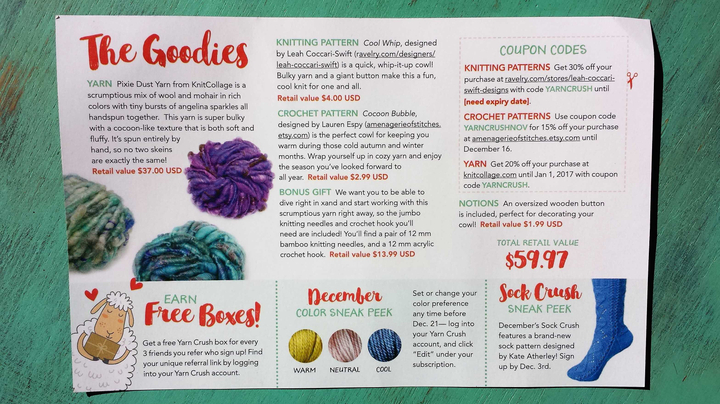 The Goodies
YARN Pixie Dust Yarn from KnitCollage is a
scrumptious mix of wool and mohair in rich
colors with tiny bursts of angelina sparkles all
handspun together. This yarn is super bulky
with a cocoon-like texture that is both soft and
fluffy. It's spun entirely by
hand, so no two skeins
are exactly the same!
Retail value $37.00 USD
KNITTING PATTERN Cool Whip, designed
by Leah Coccari-Swift (ravelry.com/designers/
leah-coccari-swift) is a quick, whip-it-up cowl!
Bulky yarn and a giant button make this a fun,
cool knit for one and all.
Retail value $4.00 USD
CROCHET PATTERN Cocoon Bubble,
designed by Lauren Espy (amenagerieofstitches.
etsy.com) is the perfect cowl for keeping you
warm during those cold autumn and winter
months. Wrap yourself up in cozy yarn and enjoy
the season you've looked forward to
all year. Retail value $2.99 USD
BONUS GIFT We want you to be able to
dive right in xand and start working with this
scrumptious yarn right away, so the jumbo
knitting needles and crochet hook you'll
need are included! You'll find a pair of 12 mm
bamboo knitting needles, and a 12 mm acrylic
crochet hook. Retail value $13.99 USD
COUPON CODES
KNITTING PATTERNS Get 30% off your
purchase at ravelry.com/stores/leah-coccari-
swift-designs with code YARNCRUSH until
[need expiry date].
CROCHET PATTERNS Use coupon code
YARNCRUSHNOV for 15% off your purchase
at amenagerieofstitches.etsy.com until
December 16.
YARN Get 20% off your purchase at
knitcollage.com until Jan 1, 2017 with coupon
code YARNCRUSH.
NOTIONS An oversized wooden button
is included, perfect for decorating your
cowl! Retail value $1.99 USD
TOTAL RETAIL VALUE
$59.97
EARN
Free Boxes!
Get a free Yarn Crush box for every
3 friends you refer who sign up! Find
your unique referral link by logging
into your Yarn Crush account.
December
COLOR SNEAK PEEK
WARM NEUTRAL COOL
Set or change your
color preference
any time before
Dec. 21— log into
your Yarn Crush
account, and click
"Edit" under your
subscription.
Sock Crush
SNEAK PEEK
December's Sock Crush
features a brand-new
sock pattern designed
by Kate Atherley! Sign
up by Dec. 3rd.